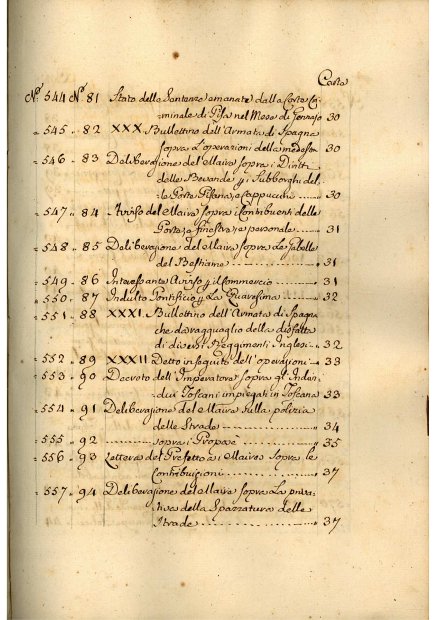 Carta
N.º 544 N.º 81 Stato delle Sentenze emanate dalla Corte Cri-
minale di Pisa nel Mese di Gennaio 30
" 545 " 82 XXX Bullettino dell'Armata di Spagna
sopra l'operazioni della medesima 30
" 546 " 83 Deliberazione del Maire sopra i Diritti
delle Bevande pei Subborghi del-
le Porte Pisana, e Cappuccini 30
" 547 " 84 Avviso del Maire sopra i Contribuenti delle
Porte, e finestre, e personale 31
" 548 " 85 Deliberazione del Maire sopra Le Gabelle
del Bestiame 31
" 549 " 86 Interessante Avviso p il Commercio 31
" 550 " 87 Indulto Pontificio p La Quaresima 32
" 551 " 88 XXXI Bullettino dell'Armata di Spag-
na che da ragguaglio della disfatta
di diversi Reggimenti Inglesi 32
" 552 " 89 XXXII Detto in seguito dell'operazioni 33
" 553 " 90 Decreto dell'Imperatore sopra gl'Indivi-
dui Toscani impiegati in Toscana 33
" 554 " 91 Deliberazione del Maire sulla polizia
delle Strade 34
" 555 " 92 sopra i 35
" 556 " 93 Lettera del Prefetto a i Maires Sopra le
Contribuzioni 37
" 557 " 94 Deliberazione del Maire sopra La priva-
tiva della Spazzatura delle
Strade 37